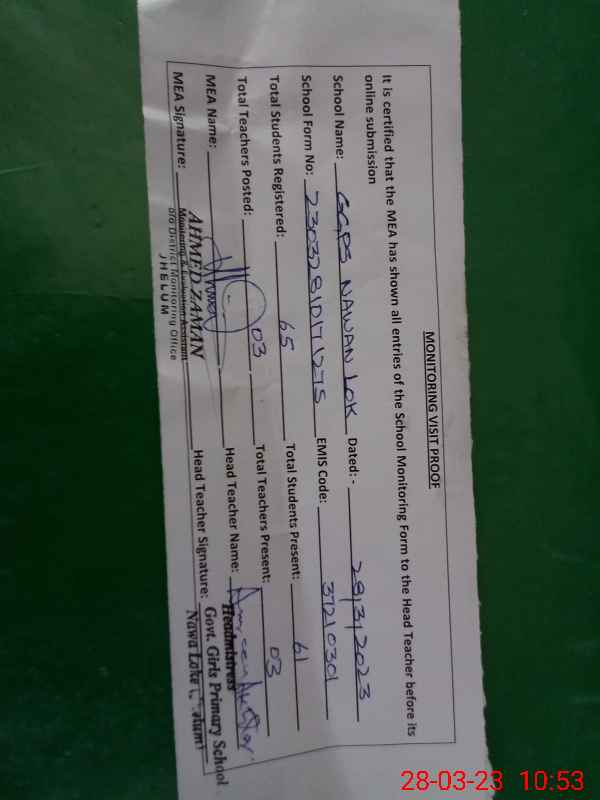 MONITORING VISIT PROOF
It is certified that the MEA has shown all entries of the School Monitoring Form to the Head Teacher before its
online submission
School Name: GGPS NAWAN LOK Dated: - 28/3/2023
School Form No: EMIS Code: 37210301
Total Students Registered: 65 Total Students Present: 61
Total Teachers Posted: 03 Total Teachers Present: 03
MEA Name: Head Teacher Name:
MEA Signature: AHMED ZAMAN Head Teacher Signature:
Monitoring & Evaluation Assistant
O/o District Monitoring Office
JHELUM
Headmistress
Govt. Girls Primary School
Nawa Loke
28-03-23 10:53